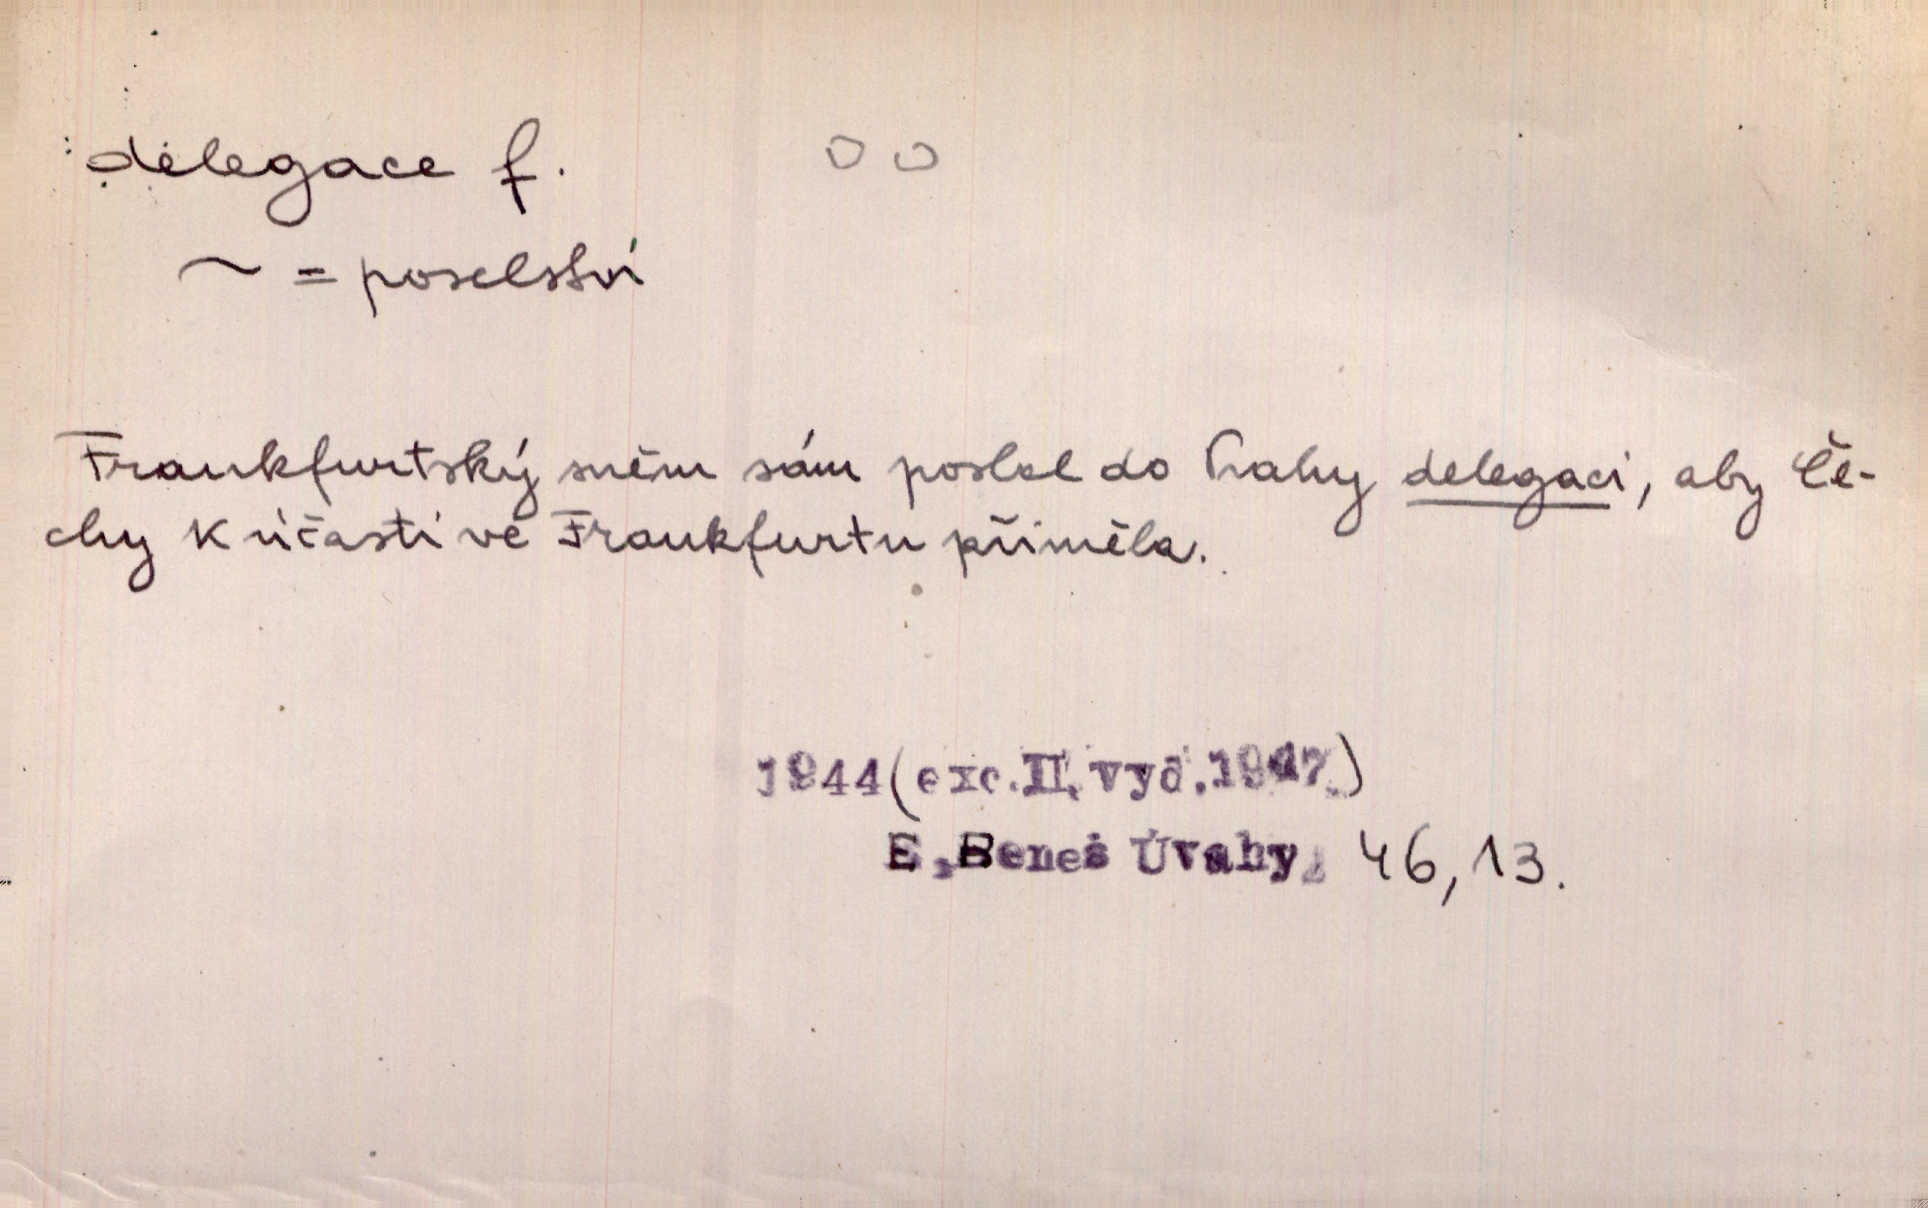 delegace f.
~ = poselství
Frankfurtský sněm sám poslal do Prahy delegaci, aby Če-
chy k účasti ve Frankfurtu přiměla.
1944 (exc. II. vyd. 1947)
E. Beneš Úvahy, 46, 13.